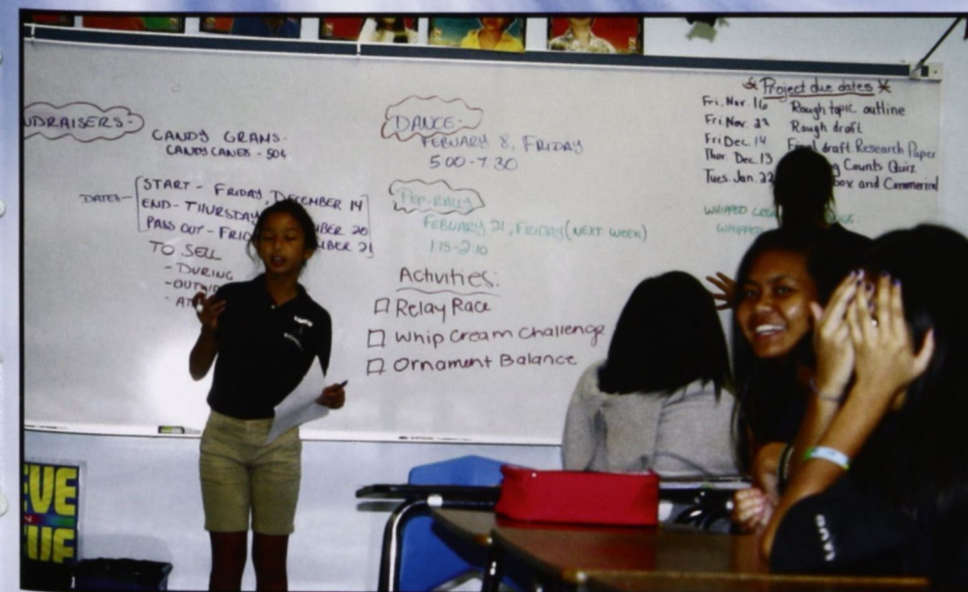 NDRAISERS:-
CANDY GRAMS-
CANDY CANES - 50¢
DATES-
START - FRIDAY, DECEMBER 14
END - THURSDAY BER 20
PASS OUT - FRI BER 21
TO SELL
- DURING
- OUTSI
- AT
DANCE-
FEBUARY 8, FRIDAY
5:00-7:30
PEP-RALLY
FEBUARY 21, FRIDAY (NEXT WEEK)
1:15-2:10
Activities:
Relay Race
Whip Cream Challenge
Ornament Balance
Project due dates
Fri. Nov. 16 Rough topic outline
Fri Nov. 22 Rough draft
Fri Dec. 14 Final draft Research Paper
Thur. Dec. 13 g Counts Quiz
Tues. Jan. 22 box and Commerical
WHIPPED CREA GE:
WHIPPED
EVE